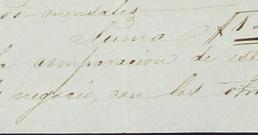 mensales
Suma $1
la comparacion de est
negocio, con los otro